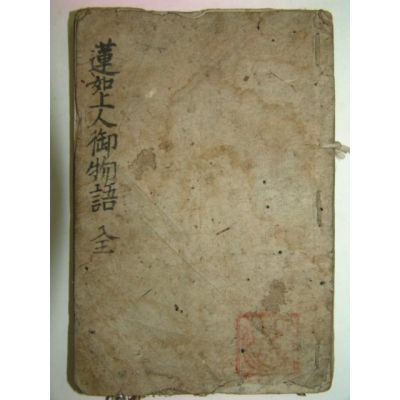 蓮如上人御物語 全